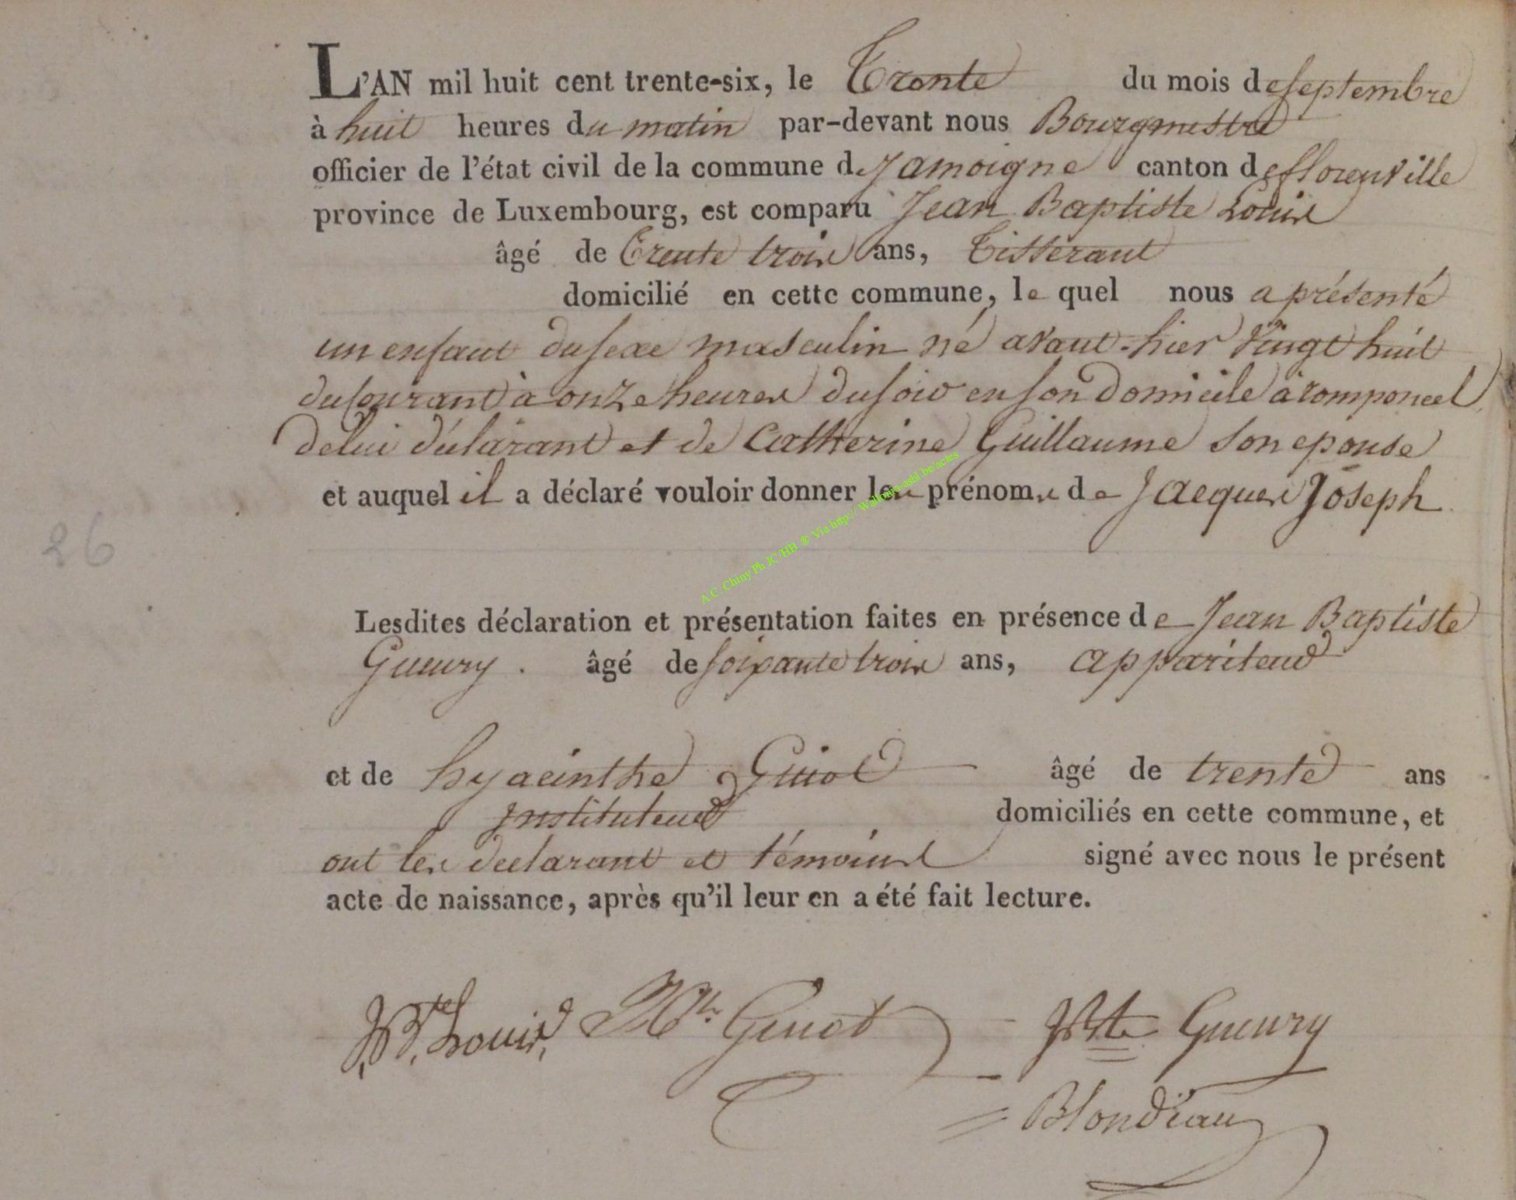 L'AN mil huit cent trente-six, le Trente du mois de septembre
à huit heures du matin par-devant nous Bourgmestre
officier de l'état civil de la commune de Jamoigne canton de florenville
province de Luxembourg, est comparu Jean Baptiste Louis
âgé de Trente trois ans, Tisserant
domicilié en cette commune, le quel nous a présenté
un enfant du sexe masculin né avant-hier vingt huit
du courant à onze heures du soir en son Domicile à romponcel
de lui déclarant et de Catherine Guillaume son epouse
et auquel il a déclaré vouloir donner les prénoms de Jacques Joseph
26
Lesdites déclaration et présentation faites en présence de Jean Baptiste
Gueury. âgé de soixante trois ans, appariteur
et de hyacinthe Guiot âgé de trente ans
Instituteur domiciliés en cette commune, et
ont les declarant et témoins signé avec nous le présent
acte de naissance, après qu'il leur en a été fait lecture.
J. Bte. Louis, Hte. Guiot JBte Gueury
Blondiau